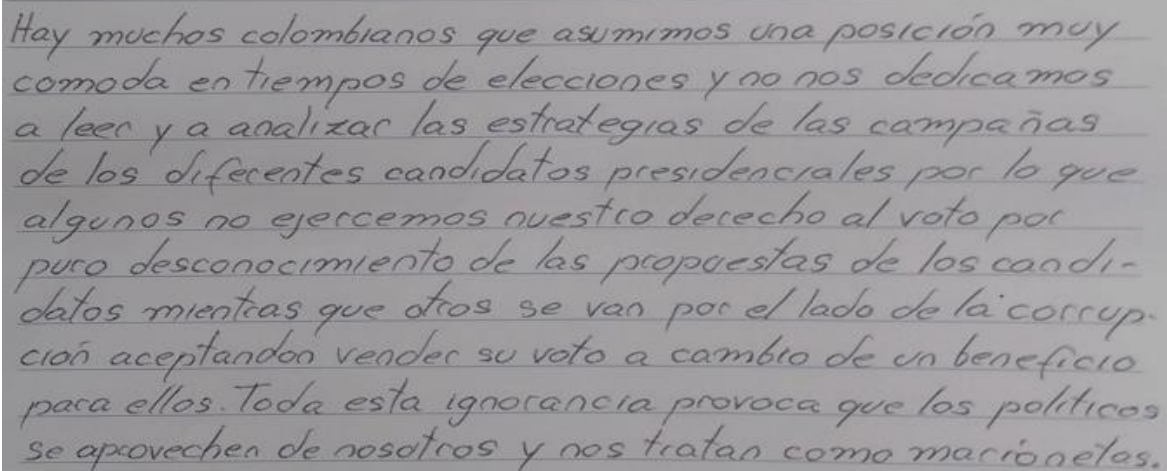 Hay muchos colombianos que asumimos una posición muy
comoda en tiempos de elecciones y no nos dedicamos
a leer y a analizar las estrategias de las campañas
de los diferentes candidatos presidenciales por lo que
algunos no ejercemos nuestro derecho al voto por
puro desconocimiento de las propuestas de los candi-
datos mientras que otros se van por el lado de la corrup-
ción aceptandon vender su voto a cambio de un beneficio
para ellos. Toda esta ignorancia provoca que los politicos
se aprovechen de nosotros y nos tratan como marionetas.